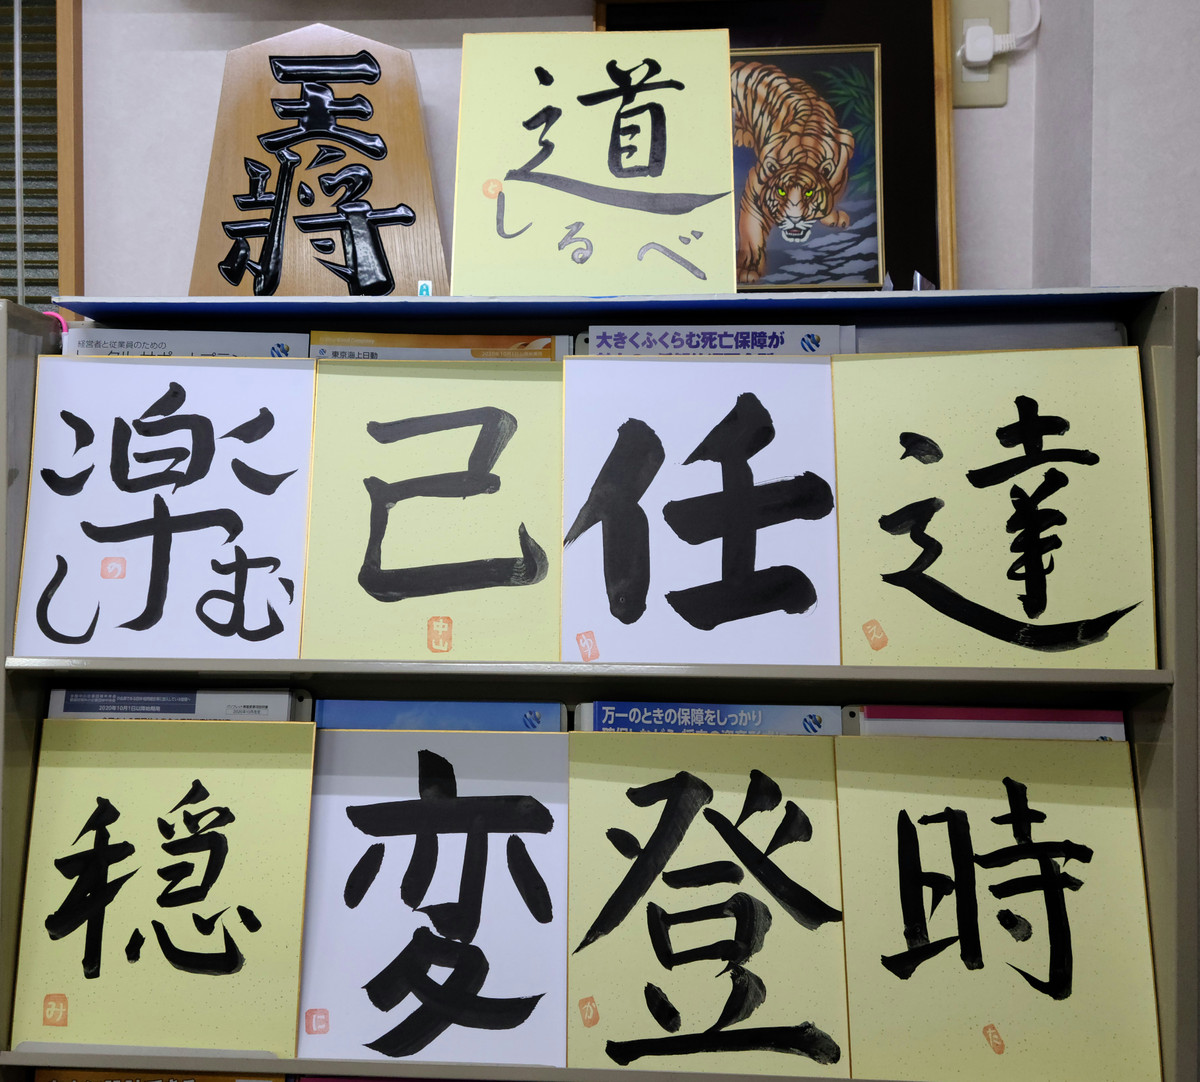 王將
道
しるべ
経営者と従業員のための
東京海上日動
大きくふくらむ死亡保障が
楽しむ
の
己
中山
任
ゆ
達
え
2020年10月1日以降始期用
万一のときの保障をしっかり
穏
み
変
に
登
か
時
た